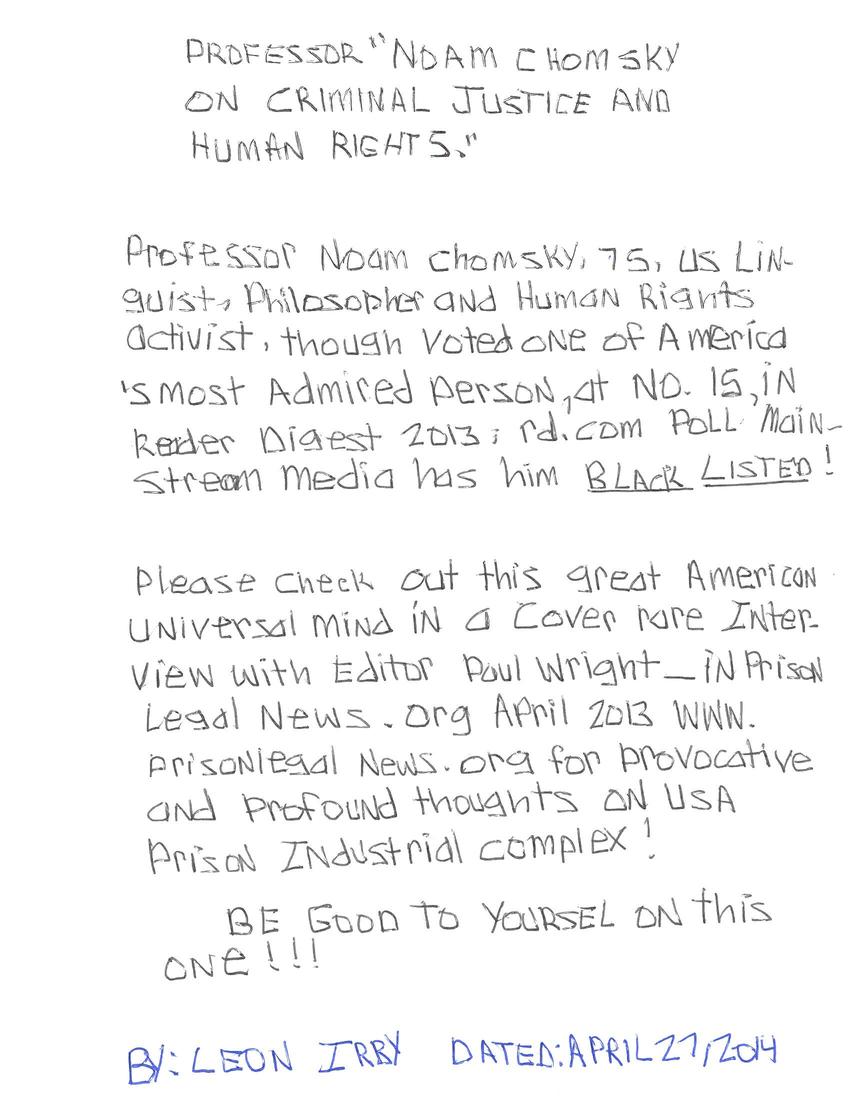 PROFESSOR "NOAM CHOMSKY
ON CRIMINAL JUSTICE AND
HUMAN RIGHTS."
Professor Noam Chomsky, 75, US Lin-
guist, Philosopher and Human Rights
activist, though voted one of America
's most Admired person, at NO. 15, in
Reader Digest 2013; rd.com POLL Main-
stream media has him BLACK LISTED!
Please check out this great American
universal mind in a Cover rare Inter-
view with Editor Paul Wright_in Prison
Legal News.org April 2013 WWW.
prisonlegal News.org for provocative
and profound thoughts on USA
Prison Industrial complex!
BE GOOD TO YOURSEL ON this
one!!!
BY: LEON IRBY DATED: APRIL 27, 2014